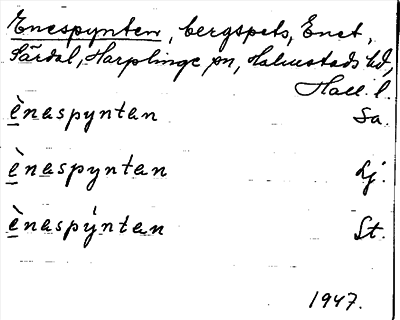 Enespynten, bergspets, Enet,
Särdal, Harplinge sn, Halmstads hd,
Hall. l.
ènaspyntan Sa.
ènaspyntan Lj.
ènaspýntan St.
1947.